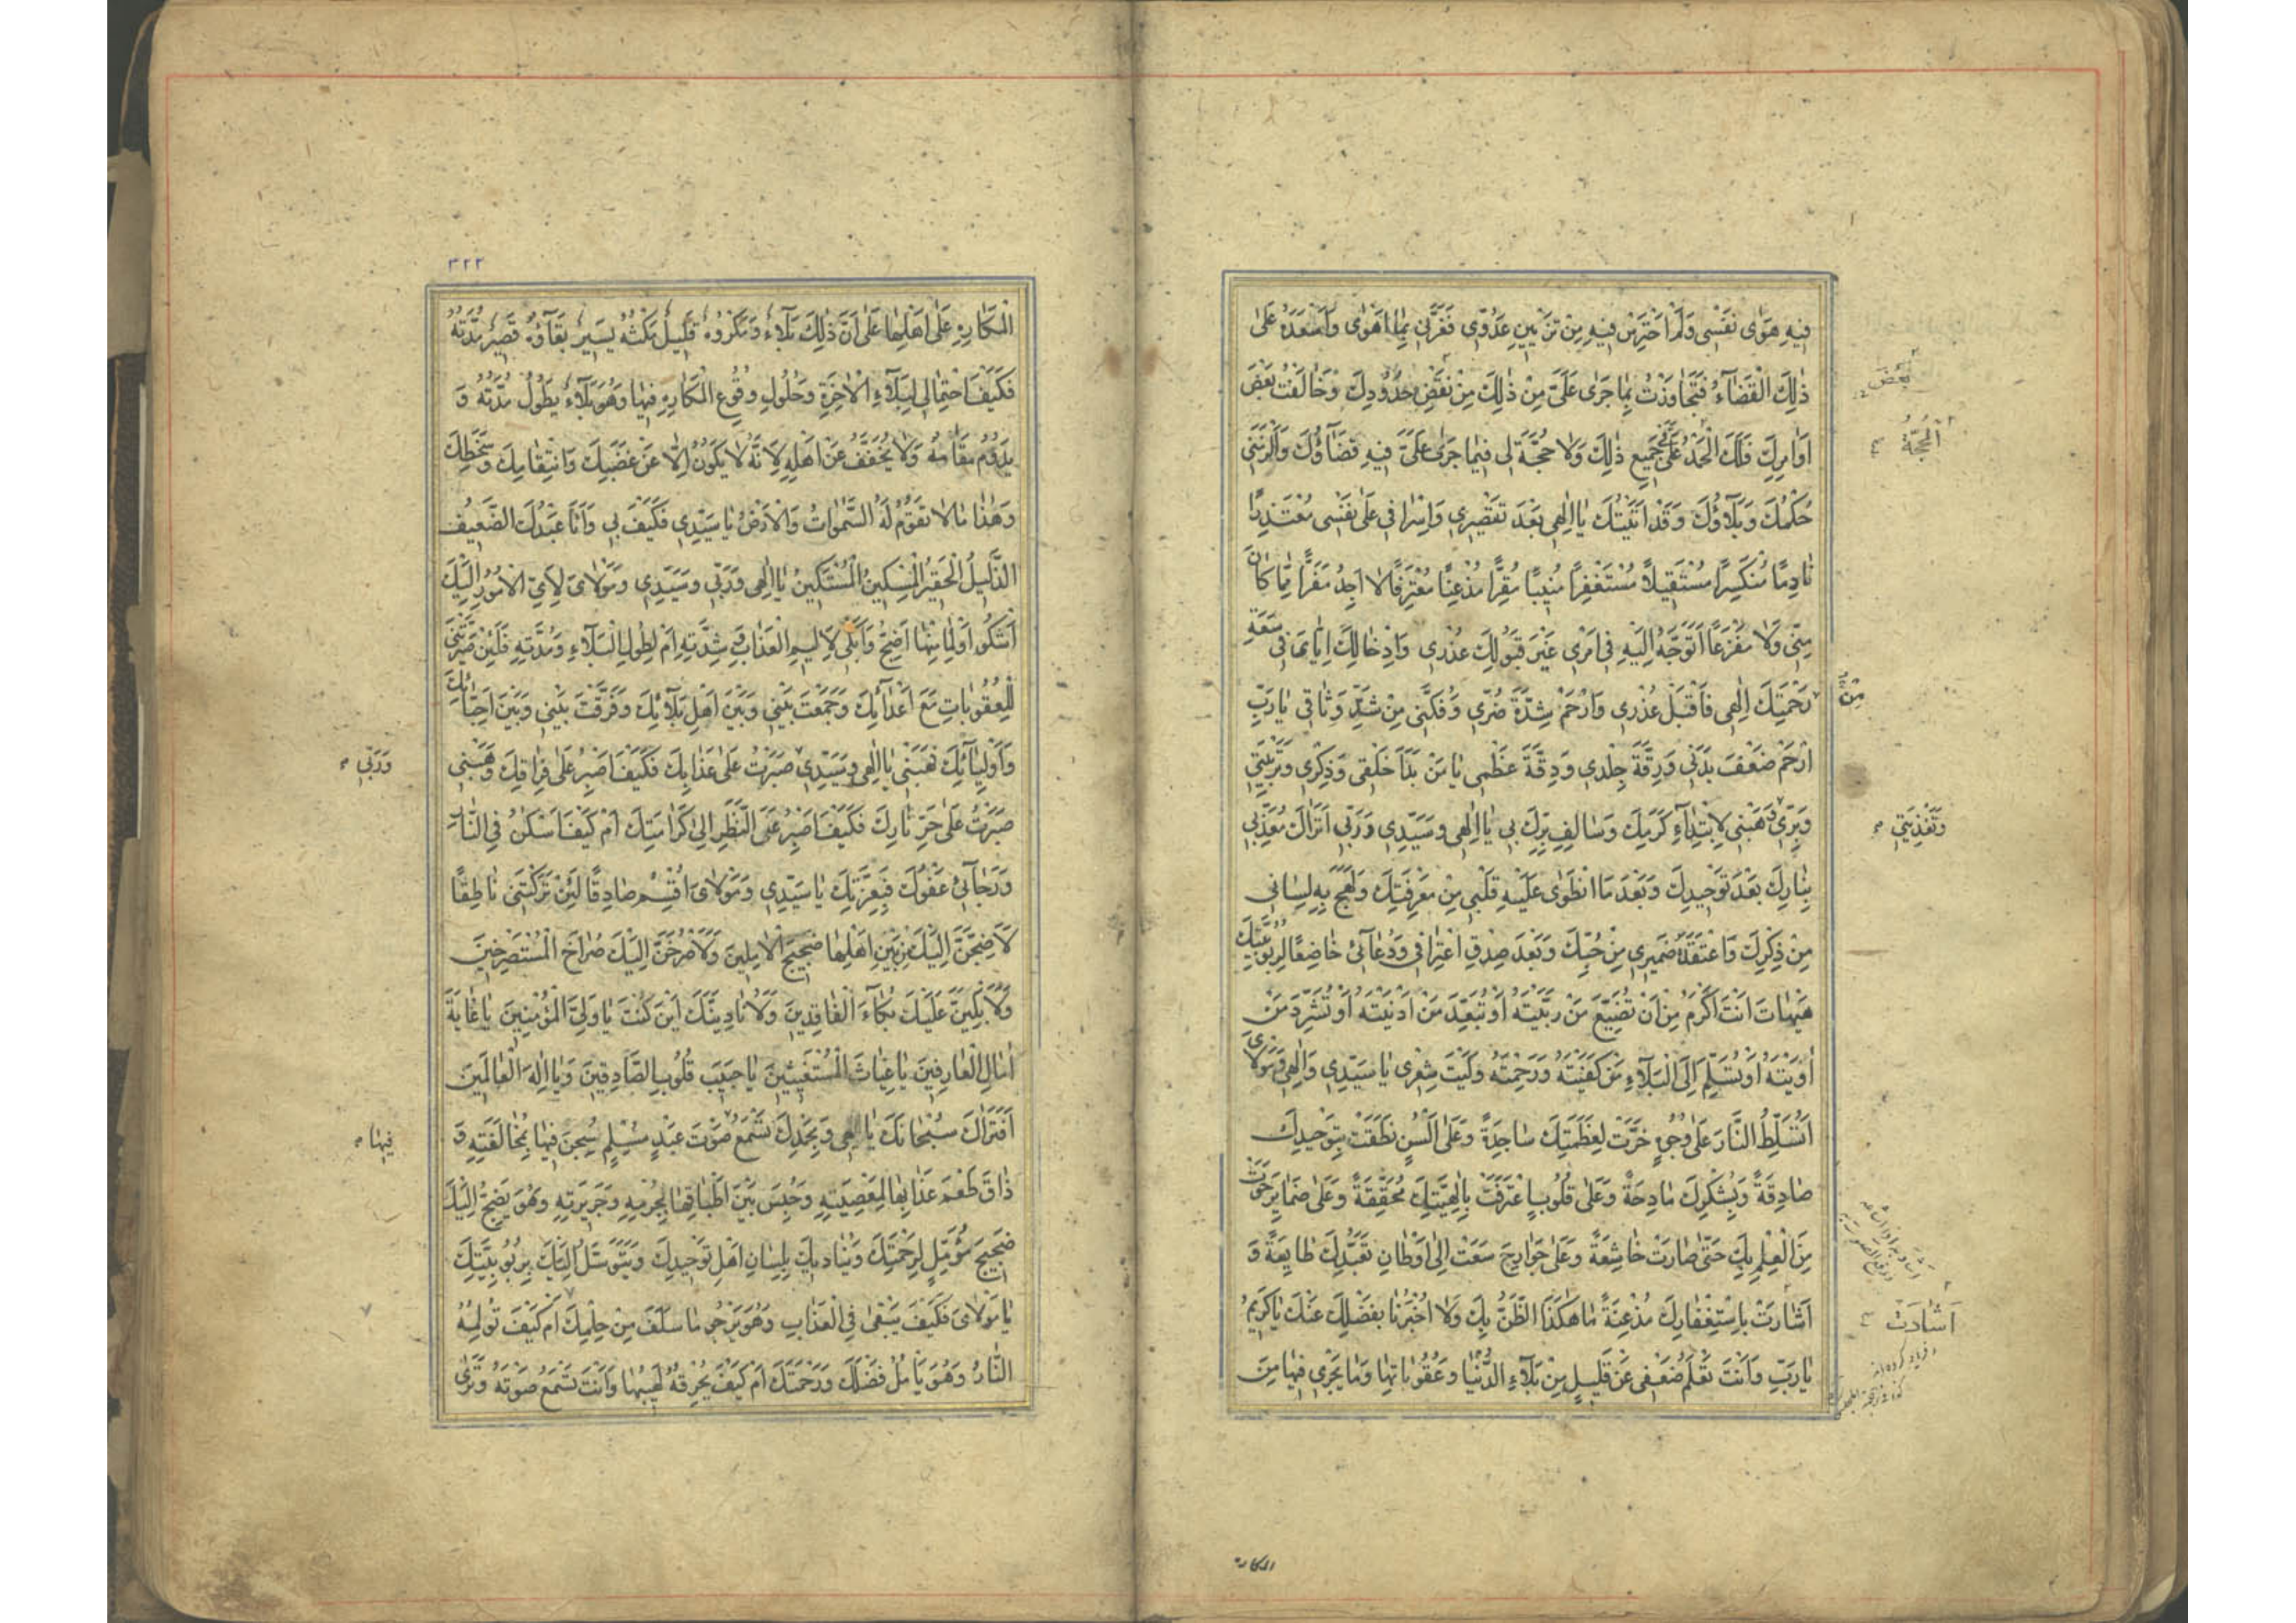 فِيهِ هَوٰى نَفْسِى وَلَمْ اَحْتَرِسْ فِيهِ مِنْ تَزْيِينِ عَدُوِّى فَغَرَّنِى بِمَا اَهْوٰى وَاَسْعَدَهُ عَلٰى
ذٰلِكَ الْقَضَآءُ فَتَجَاوَزْتُ بِمَا جَرٰى عَلَىَّ مِنْ ذٰلِكَ مِنْ نَقْضِ حُدُودِكَ وَخَالَفْتُ بَعْضَ
بَعْضَ
اَوَامِرِكَ فَلَكَ الْحَمْدُ عَلَىَّ فِى جَمِيعِ ذٰلِكَ وَلَا حُجَّةَ لِى فِيمَا جَرٰى عَلَىَّ فِيهِ قَضَآؤُكَ وَاَلْزَمَنِى
الْحُجَّةُ
حُكْمُكَ وَبَلَاؤُكَ وَقَدْ اَتَيْتُكَ يَا اِلٰهِى بَعْدَ تَقْصِيرِى وَاِسْرَافِى عَلٰى نَفْسِى مُعْتَذِرًا
نَادِمًا مُنْكَسِرًا مُسْتَقِيلًا مُسْتَغْفِرًا مُنِيبًا مُقِرًّا مُذْعِنًا مُعْتَرِفًا لَا اَجِدُ مَفَرًّا مِمَّا كَانَ
مِنِّى وَلَا مَفْزَعًا اَتَوَجَّهُ اِلَيْهِ فِى اَمْرِى غَيْرَ قَبُولِكَ عُذْرِى وَاِدْخَالِكَ اِيَّاىَ فِى سَعَةِ
مِنْ
رَحْمَتِكَ اِلٰهِى فَاقْبَلْ عُذْرِى وَارْحَمْ شِدَّةَ ضُرِّى وَفُكَّنِى مِنْ شَدِّ وَثَاقِى يَا رَبِّ
ارْحَمْ ضَعْفَ بَدَنِى وَرِقَّةَ جِلْدِى وَدِقَّةَ عَظْمِى يَا مَنْ بَدَاَ خَلْقِى وَذِكْرِى وَتَرْبِيَتِى
وَبِرِّى هَبْنِى لِابْتِدَآءِ كَرَمِكَ وَسَالِفِ بِرِّكَ بِى يَا اِلٰهِى وَسَيِّدِى وَرَبِّى اَتُرَاكَ مُعَذِّبِى
وَتَغْذِيَتِى
بِنَارِكَ بَعْدَ تَوْحِيدِكَ وَبَعْدَ مَا انْطَوٰى عَلَيْهِ قَلْبِى مِنْ مَعْرِفَتِكَ وَلَهِجَ بِهِ لِسَانِى
مِنْ ذِكْرِكَ وَاعْتَقَدَهُ ضَمِيرِى مِنْ حُبِّكَ وَبَعْدَ صِدْقِ اعْتِرَافِى وَدُعَآئِى خَاضِعًا لِرُبُوبِيَّتِكَ
هَيْهَاتَ اَنْتَ اَكْرَمُ مِنْ اَنْ تُضَيِّعَ مَنْ رَبَّيْتَهُ اَوْ تُبَعِّدَ مَنْ اَدْنَيْتَهُ اَوْ تُشَرِّدَ مَنْ
اٰوَيْتَهُ اَوْ تُسَلِّمَ اِلَى الْبَلَآءِ مَنْ كَفَيْتَهُ وَرَحِمْتَهُ وَلَيْتَ شِعْرِى يَا سَيِّدِى وَاِلٰهِى وَمَوْلَاىَ
اَتُسَلِّطُ النَّارَ عَلٰى وُجُوهٍ خَرَّتْ لِعَظَمَتِكَ سَاجِدَةً وَعَلٰى اَلْسُنٍ نَطَقَتْ بِتَوْحِيدِكَ
صَادِقَةً وَبِشُكْرِكَ مَادِحَةً وَعَلٰى قُلُوبٍ اعْتَرَفَتْ بِاِلٰهِيَّتِكَ مُحَقِّقَةً وَعَلٰى ضَمَايِرَ حَوَتْ
مِنَ الْعِلْمِ بِكَ حَتّٰى صَارَتْ خَاشِعَةً وَعَلٰى جَوَارِحَ سَعَتْ اِلٰى اَوْطَانِ تَعَبُّدِكَ طَايِعَةً وَ
اَشَارَتْ بِاسْتِغْفَارِكَ مُذْعِنَةً مَا هٰكَذَا الظَّنُّ بِكَ وَلَا اُخْبِرْنَا بِفَضْلِكَ عَنْكَ يَا كَرِيمُ
اَشَادَتْ
يَا رَبِّ وَاَنْتَ تَعْلَمُ ضَعْفِى عَنْ قَلِيلٍ مِنْ بَلَآءِ الدُّنْيَا وَعُقُوبَاتِهَا وَمَا يَجْرِى فِيهَا مِنَ
المكاره
٣٢٢
الْمَكَارِهِ عَلٰى اَهْلِهَا عَلٰى اَنَّ ذٰلِكَ بَلَاءٌ وَمَكْرُوهٌ قَلِيلٌ مَكْثُهُ يَسِيرٌ بَقَآؤُهُ قَصِيرٌ مُدَّتُهُ
فَكَيْفَ احْتِمَالِى لِبَلَآءِ الْاٰخِرَةِ وَحُلُولِ وُقُوعِ الْمَكَارِهِ فِيهَا وَهُوَ بَلَآءٌ يَطُولُ مُدَّتُهُ وَ
يَدُومُ مَقَامُهُ وَلَا يُخَفَّفُ عَنْ اَهْلِهِ لِاَنَّهُ لَا يَكُونُ اِلَّا عَنْ غَضَبِكَ وَانْتِقَامِكَ وَسَخَطِكَ
وَهٰذَا مَا لَا تَقُومُ لَهُ السَّمٰوَاتُ وَالْاَرْضُ يَا سَيِّدِى فَكَيْفَ بِى وَاَنَا عَبْدُكَ الضَّعِيفُ
الذَّلِيلُ الْحَقِيرُ الْمِسْكِينُ الْمُسْتَكِينُ يَا اِلٰهِى وَرَبِّى وَسَيِّدِى وَمَوْلَاىَ لِاَىِّ الْاُمُورِ اِلَيْكَ
اَشْكُو وَلِمَا مِنْهَا اَضِجُّ وَاَبْكِى لِاَلِيمِ الْعَذَابِ وَشِدَّتِهِ اَمْ لِطُولِ الْبَلَآءِ وَمُدَّتِهِ فَلَئِنْ صَيَّرْتَنِى
لِلْعُقُوبَاتِ مَعَ اَعْدَآئِكَ وَجَمَعْتَ بَيْنِى وَبَيْنَ اَهْلِ بَلَآئِكَ وَفَرَّقْتَ بَيْنِى وَبَيْنَ اَحِبَّائِكَ
وَاَوْلِيَآئِكَ فَهَبْنِى يَا اِلٰهِى وَسَيِّدِى صَبَرْتُ عَلٰى عَذَابِكَ فَكَيْفَ اَصْبِرُ عَلٰى فِرَاقِكَ وَهَبْنِى
وَرَبِّى
صَبَرْتُ عَلٰى حَرِّ نَارِكَ فَكَيْفَ اَصْبِرُ عَنِ النَّظَرِ اِلٰى كَرَامَتِكَ اَمْ كَيْفَ اَسْكُنُ فِى النَّارِ
وَرَجَآئِى عَفْوُكَ فَبِعِزَّتِكَ يَا سَيِّدِى وَمَوْلَاىَ اُقْسِمُ صَادِقًا لَئِنْ تَرَكْتَنِى نَاطِقًا
لَاَضِجَّنَّ اِلَيْكَ مِنْ بَيْنِ اَهْلِهَا ضَجِيجَ الْاٰمِلِينَ وَلَاَصْرُخَنَّ اِلَيْكَ صُرَاخَ الْمُسْتَصْرِخِينَ
وَلَاَبْكِيَنَّ عَلَيْكَ بُكَآءَ الْفَاقِدِينَ وَلَاُنَادِيَنَّكَ اَيْنَ كُنْتَ يَا وَلِىَّ الْمُؤْمِنِينَ يَا غَايَةَ
اٰمَالِ الْعَارِفِينَ يَا غِيَاثَ الْمُسْتَغِيثِينَ يَا حَبِيبَ قُلُوبِ الصَّادِقِينَ وَيَا اِلٰهَ الْعَالَمِينَ
اَفَتُرَاكَ سُبْحَانَكَ يَا اِلٰهِى وَبِحَمْدِكَ تَسْمَعُ صَوْتَ عَبْدٍ مُسْلِمٍ سُجِنَ فِيهَا بِمُخَالَفَتِهِ وَ
فِيهَا
ذَاقَ طَعْمَ عَذَابِهَا لِمَعْصِيَتِهِ وَحُبِسَ بَيْنَ اَطْبَاقِهَا بِجُرْمِهِ وَجَرِيرَتِهِ وَهُوَ يَضِجُّ اِلَيْكَ
ضَجِيجَ مُؤَمِّلٍ لِرَحْمَتِكَ وَيُنَادِيكَ بِلِسَانِ اَهْلِ تَوْحِيدِكَ وَيَتَوَسَّلُ اِلَيْكَ بِرُبُوبِيَّتِكَ
يَا مَوْلَاىَ فَكَيْفَ يَبْقٰى فِى الْعَذَابِ وَهُوَ يَرْجُو مَا سَلَفَ مِنْ حِلْمِكَ اَمْ كَيْفَ تُولِمُهُ
النَّارُ وَهُوَ يَأْمُلُ فَضْلَكَ وَرَحْمَتَكَ اَمْ كَيْفَ يُحْرِقُهُ لَهِيبُهَا وَاَنْتَ تَسْمَعُ صَوْتَهُ وَتَرٰى